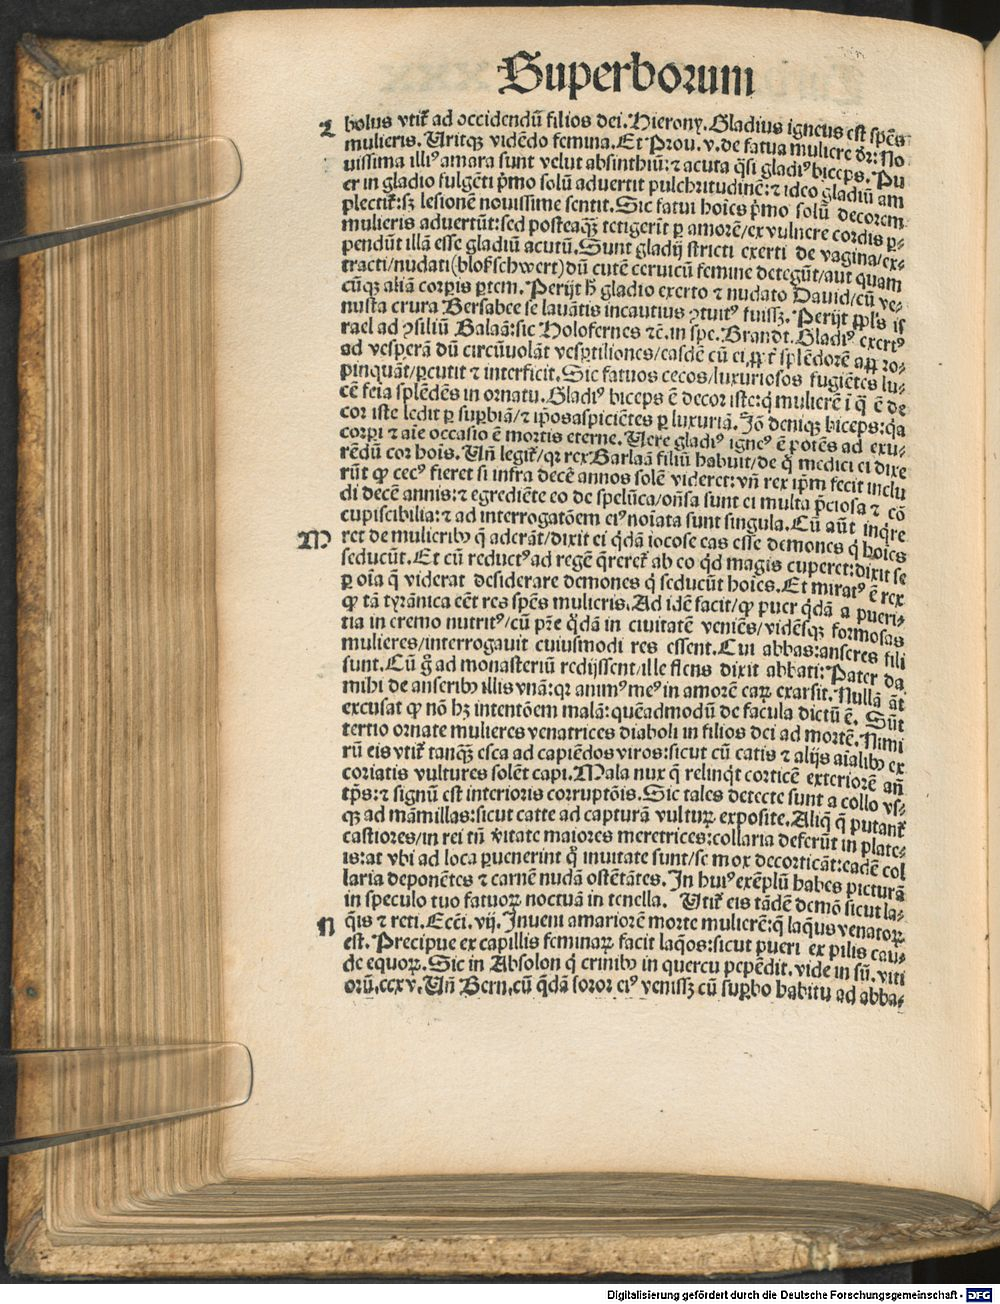 Superborum
L bolus vtit᷑ ad occidendū filios dei. Hierony. Gladius igneus est spēs
mulieris. Uritqꝫ vidēdo femina. Et Prou. v. de fatua muliere dr̄: No
uissima illiꝰ amara sunt velut absinthiū: ⁊ acuta q̄si gladiꝰ biceps. Pu
er in gladio fulgēti p̄mo solū aduertit pulchritudinē: ⁊ ideo gladiū am
plectit᷑: sꝫ lesionē nouissime sentit. Sic fatui hoīes p̄mo solū decorem
mulieris aduertūt: sed posteaqꝫ tetigerīt ꝑ amorē/ex vulnere cordis ꝑ⸗
pendūt illā esse gladiū acutū. Sunt gladij stricti exerti de vagina/ex⸗
tracti/nudati (blosschwert) dū cutē ceruicū femine detegūt/aut quam
cūqꝫ aliā corꝑis ꝑtem. Perijt h̄ gladio exerto ⁊ nudato Dauid/cū ve⸗
nusta crura Bersabee se lauātis incautius ꝯtuitꝰ fuissꝫ. Perijt ꝓpl's is
rael ad ꝯsiliū Balaā: sic Holofernes ⁊c̄. in spe. Brandt. Gladiꝰ exertꝰ
ad vesperā dū circūuolāt vesꝑtiliones/easdē cū ei, ꝓpt̄ splēdorē aꝓpro⸗
pinquāt/ꝑcutit ⁊ interficit. Sic fatuos cecos/luxuriosos fugiētes lu⸗
cē feīa splēdēs in ornatu. Gladiꝰ biceps ē decor iste: q̇ mulierē ī q̄ ē de
cor iste ledit ꝑ suꝑbiā/⁊ ip̄os aspiciētes ꝑ luxuriā. Iō deniqꝫ biceps: q̇a
corꝑi ⁊ aīe occasio ē mortis eterne. Uere gladiꝰ igneꝰ ē potēs ad exu⸗
rēdū cor hoīs. Un̄ legit᷑/qꝛ rex Barlaā filiū habuit/de q̊ medici ei dixe
rūt ꝙ cecꝰ fieret si infra decē annos solē videret: vn̄ rex ip̄m fecit inclu
di decē annis: ⁊ egrediēte eo de spelūca/on̄sa sunt ei multa p̄ciosa ⁊ cō
cupiscibilia: ⁊ ad interrogatōem eiꝰ noīata sunt singula. Cū aūt inq̇re
M ret de mulieribꝰ q̄ aderāt/dixit ei q̇dā iocose eas esse demones q̇ hoīes
seducūt. Et cū reductꝰ ad regē q̄reret᷑ ab eo q̇d magis cuperet: dixit se
ꝑ oīa q̄ viderat desiderare demones q̇ seducūt hoīes. Et miratꝰ ē rex
ꝙ tā tyrānica eēt res spēs mulieris. Ad idē facit/ꝙ puer q̇dā a pueri⸗
tia in eremo nutritꝰ/cū pr̄e q̇dā in ciuitatē veniēs/vidēsqꝫ formosas
mulieres/interrogauit cuiusmodi res essent. Cui abbas: anseres fili
sunt. Cū g̊ ad monasteriū redijssent/ille flens dixit abbati: Pater da
mihi de anseribꝰ illis vnā: qꝛ animꝰ meꝰ in amorē eaꝝ exarsit. Nullā āt
excusat ꝙ nō hꝫ intentōem malā: quēadmodū de facula dictū ē. Sūt
tertio ornate mulieres venatrices diaboli in filios dei ad mortē. Nimi
rū eis vtit᷑ tanqꝫ esca ad capiēdos viros: sicut cū catis ⁊ alijs aīalibꝰ ex
coriatis vultures solēt capi. Mala nux q̄ relinq̇t corticē exteriorē an̄
tp̄s: ⁊ signū est interioris corruptōis. Sic tales detecte sunt a collo vs⸗
qꝫ ad māmillas: sicut catte ad capturā vultuꝝ exposite. Aliq̄ q̄ putant᷑
castiores/in rei tn̄ v̄itate maiores meretrices: collaria deferūt in plate⸗
is: at vbi ad loca ꝑuenerint q̊ inuitate sunt/se mox decorticāt: eadē col
laria deponētes ⁊ carnē nudā ostētātes. In huiꝰ exēplū habes picturā
in speculo tuo fatuoꝝ noctuā in tenella. Utit᷑ eis tādē demō sicut la⸗
N q̄is ⁊ reti. Ecci. vij. Inueni amariorē morte mulierē: q̄ laq̄us venatoꝝ
est. Precipue ex capillis feminaꝝ facit laq̄os: sicut pueri ex pilis cau⸗
de equoꝝ. Sic in Absolon q̇ crinibꝰ in quercu pepēdit. vide in sū. viti
orū. ccxv. Un̄ Bern. cū q̇dā soror eiꝰ venissꝫ cū suꝑbo habitu ad abba⸗
Digitalisierung gefördert durch die Deutsche Forschungsgemeinschaft - DFG